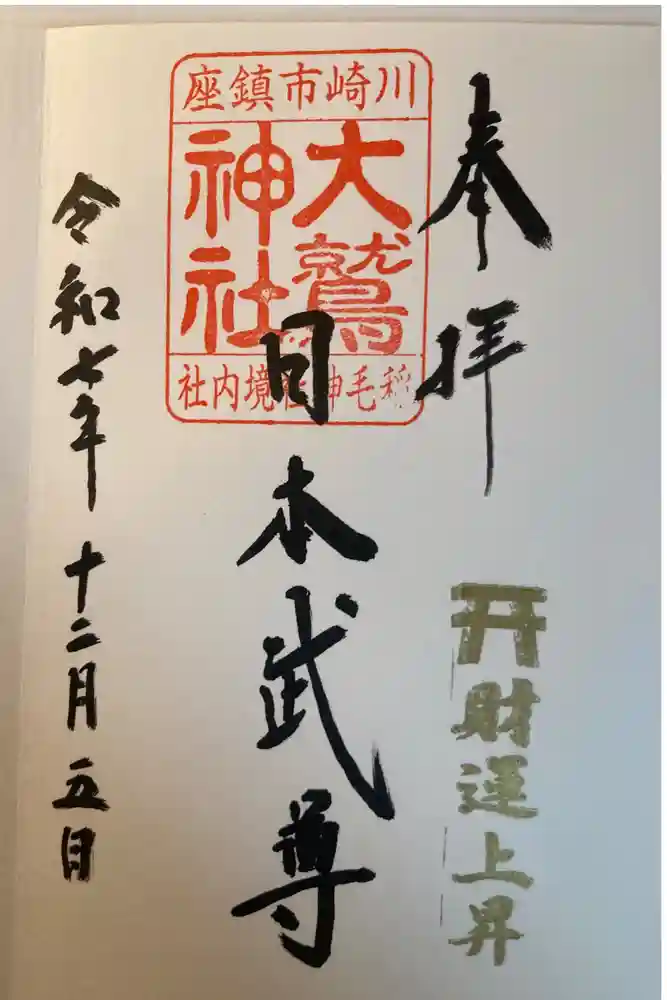 奉拝
川崎市鎮座
大鷲
神社
稲毛神社境内社
日本武尊
財運上昇
令和七年十二月五日